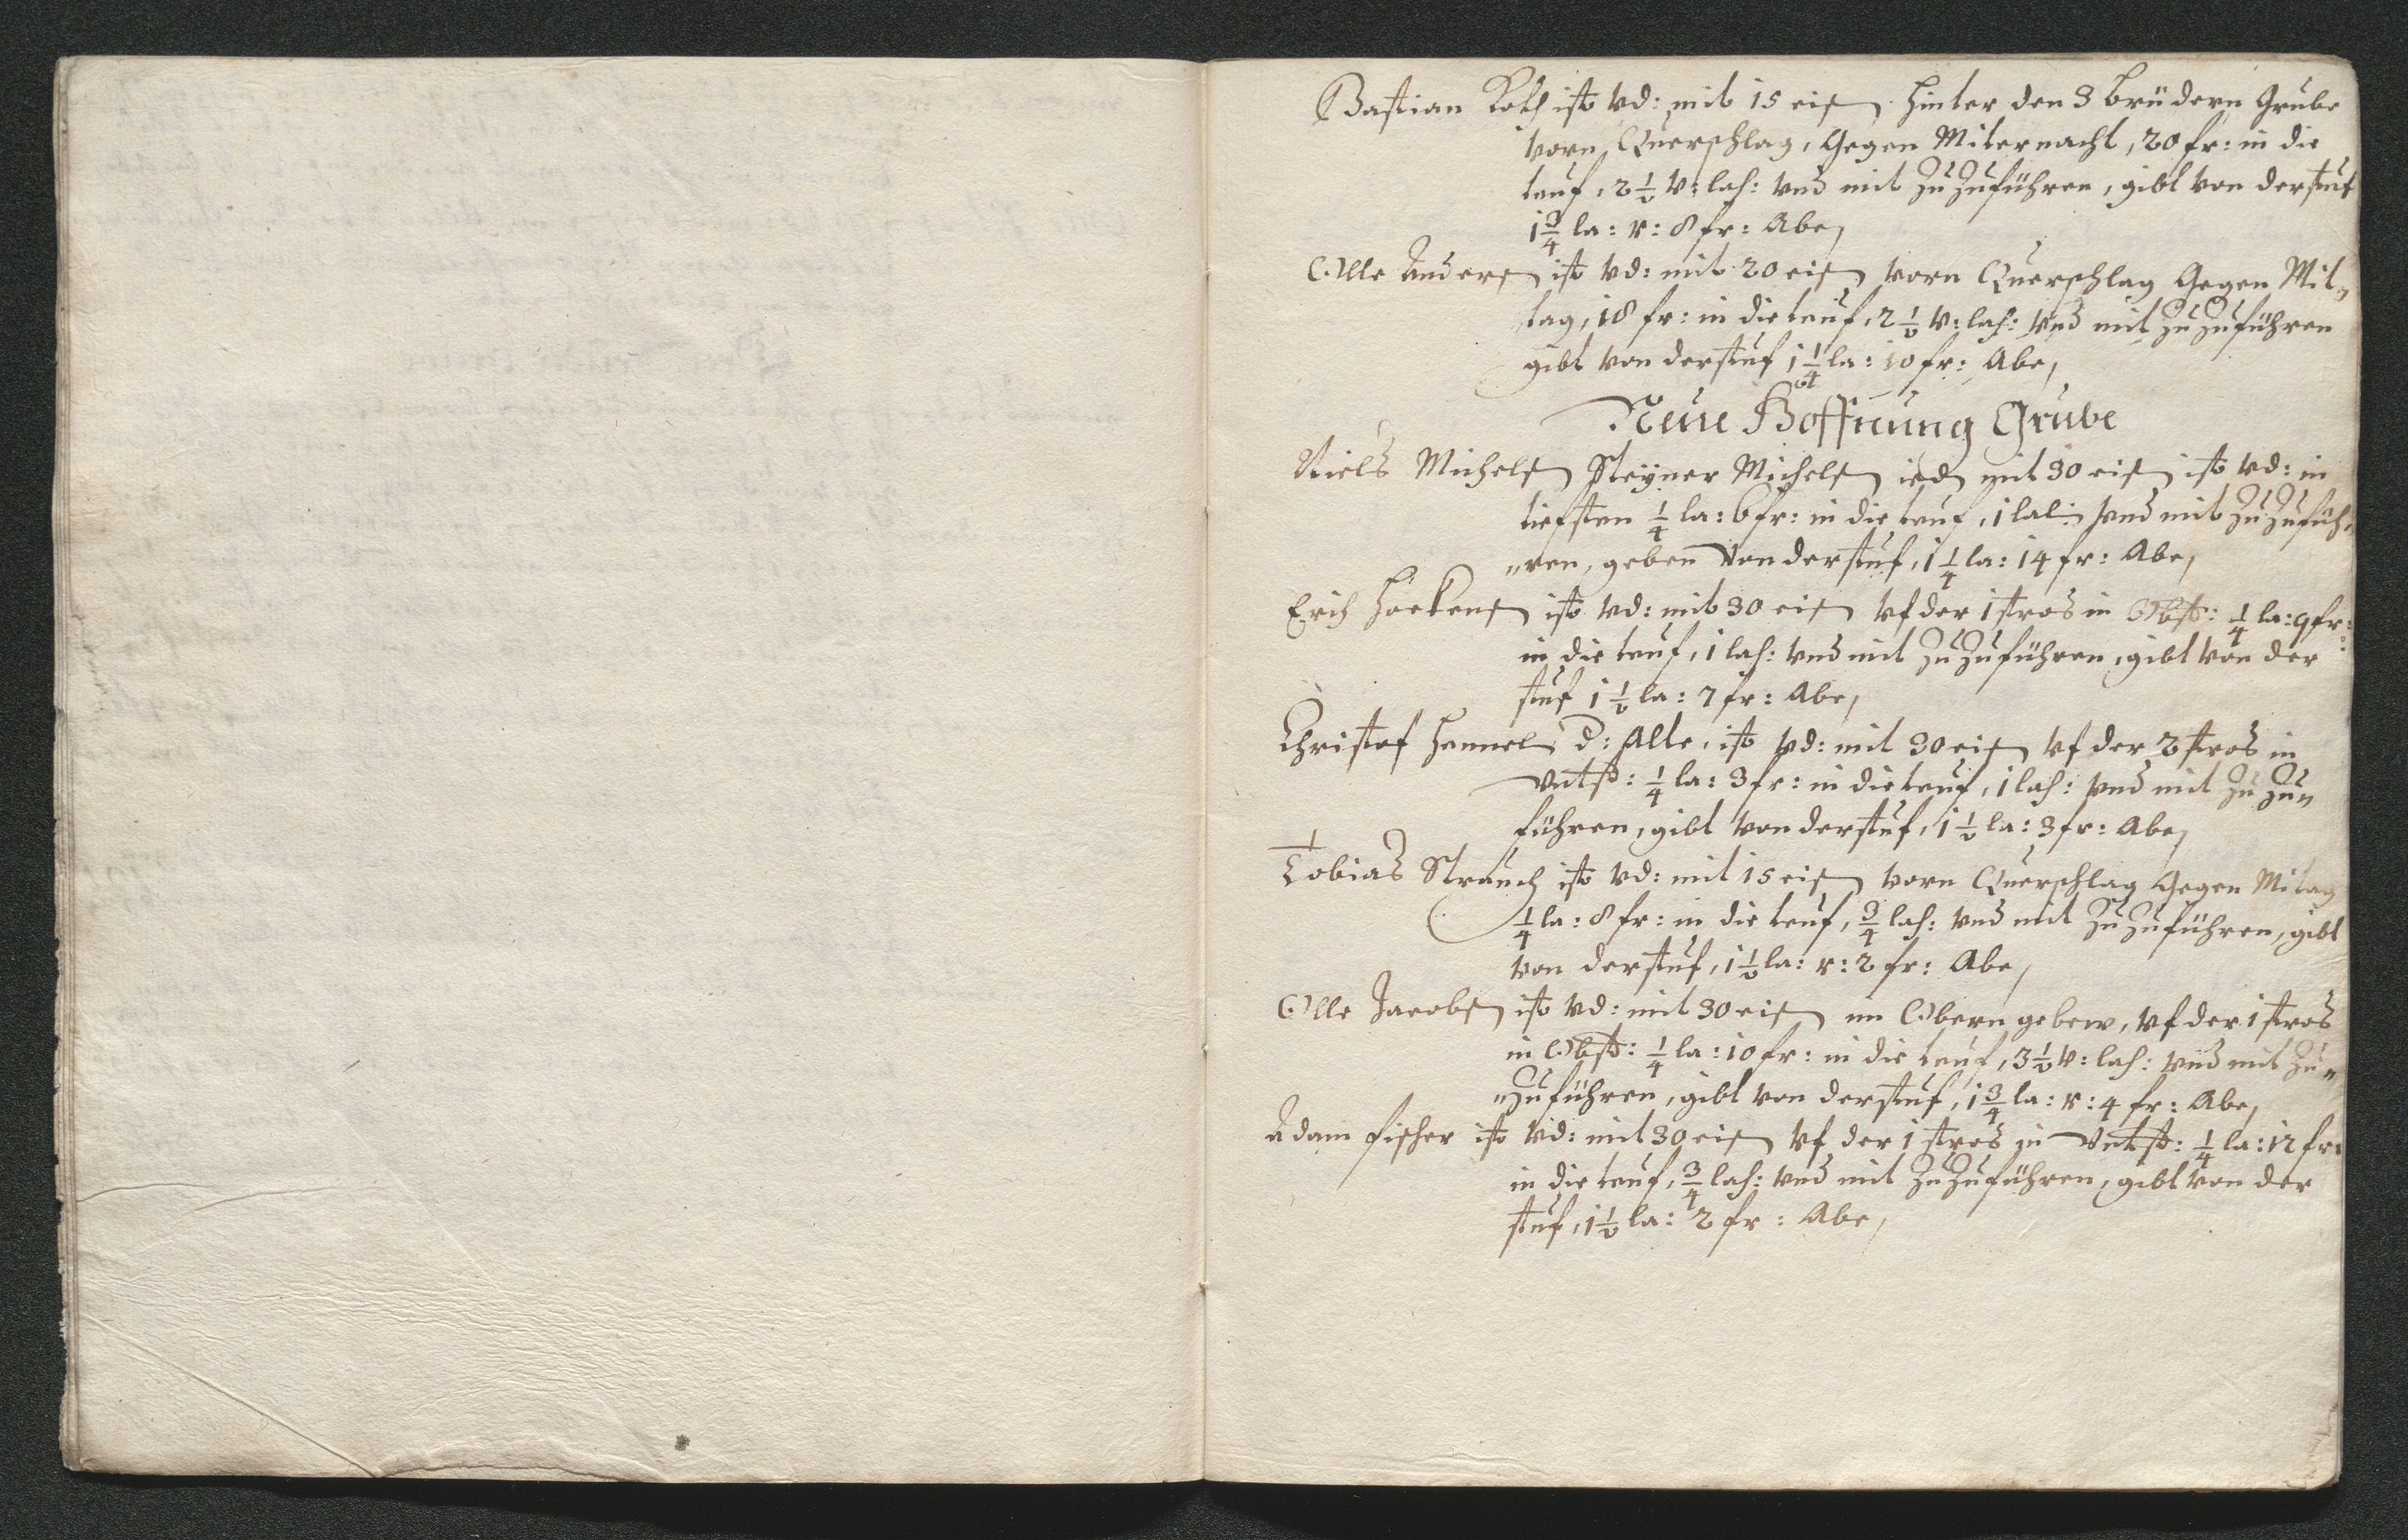 Bastian Koch ist vd: mit 15 eisn hinter den 3 brüdern Grube
vorn Querschlag, Gegen Miternacht, 20 fr: in die
teuf, 2 1/2 v: lah: vnd mit zu zuführen, gibt von derstuf
1 3/4 la: r: 8 fr: Abe,
Olle Andersn ist vd: mit 20 eisn vorn Querschlag Gegen Mit„
tag, 18 fr: in die teuf, 2 1/2 v: lah: vnd mit zu zuführen
gibt von derstuf 1 1/4 la: 10 fr: Abe,
Neue Hoffnung Grube
Niels Michelsn Steÿner Michelsn ied mit 30 eisn ist vd: in
tiefsten 1/4 la: 6 fr: in die teuf, 1 lah: vnd mit zu zufüh„
„ren, geben von derstuf, 1 1/4 la: 14 fr: Abe,
Erich Hoekensn ist vd: mit 30 eisn vf der 1 stros in Obst: 1/4 la: 9 fr:
in die teuf, 1 lah: vnd mit zu zuführen, gibt von der
stuf 1 1/2 la: 7 fr: Abe,
Christof Hemmel d: Alte, ist vd: mit 30 eisn vf der 2 stros in
Vntst: 1/4 la: 3 fr: in die teuf, 1 lah: vnd mit zu zu„
führen, gibt von derstuf, 1 1/2 la: 3 fr: Abe,
Tobias Strauch ist vd: mit 15 eisn vorn Querschlag Gegen Mitag
1/4 la: 8 fr: in die teuf, 3/4 lah: vnd mit zu zuführen, gibt
von derstuf, 1 1/2 la: r: 2 fr: Abe,
Olle Jacobsn ist vd: mit 30 eisn im Obern gebew, vf der 1 stros
in Obst: 1/4 la: 10 fr: in die teuf, 3 1/2 v: lah: vnd mit zu„
„zuführen, gibt von derstuf, 1 3/4 la: r: 4 fr: Abe,
Adam fischer ist vd: mit 30 eisn vf der 1 stros in Vntst: 1/4 la: 12 fr:
in die teuf, 3/4 lah: vnd mit zu zuführen, gibt von der
stuf, 1 1/2 la: 2 fr: Abe,